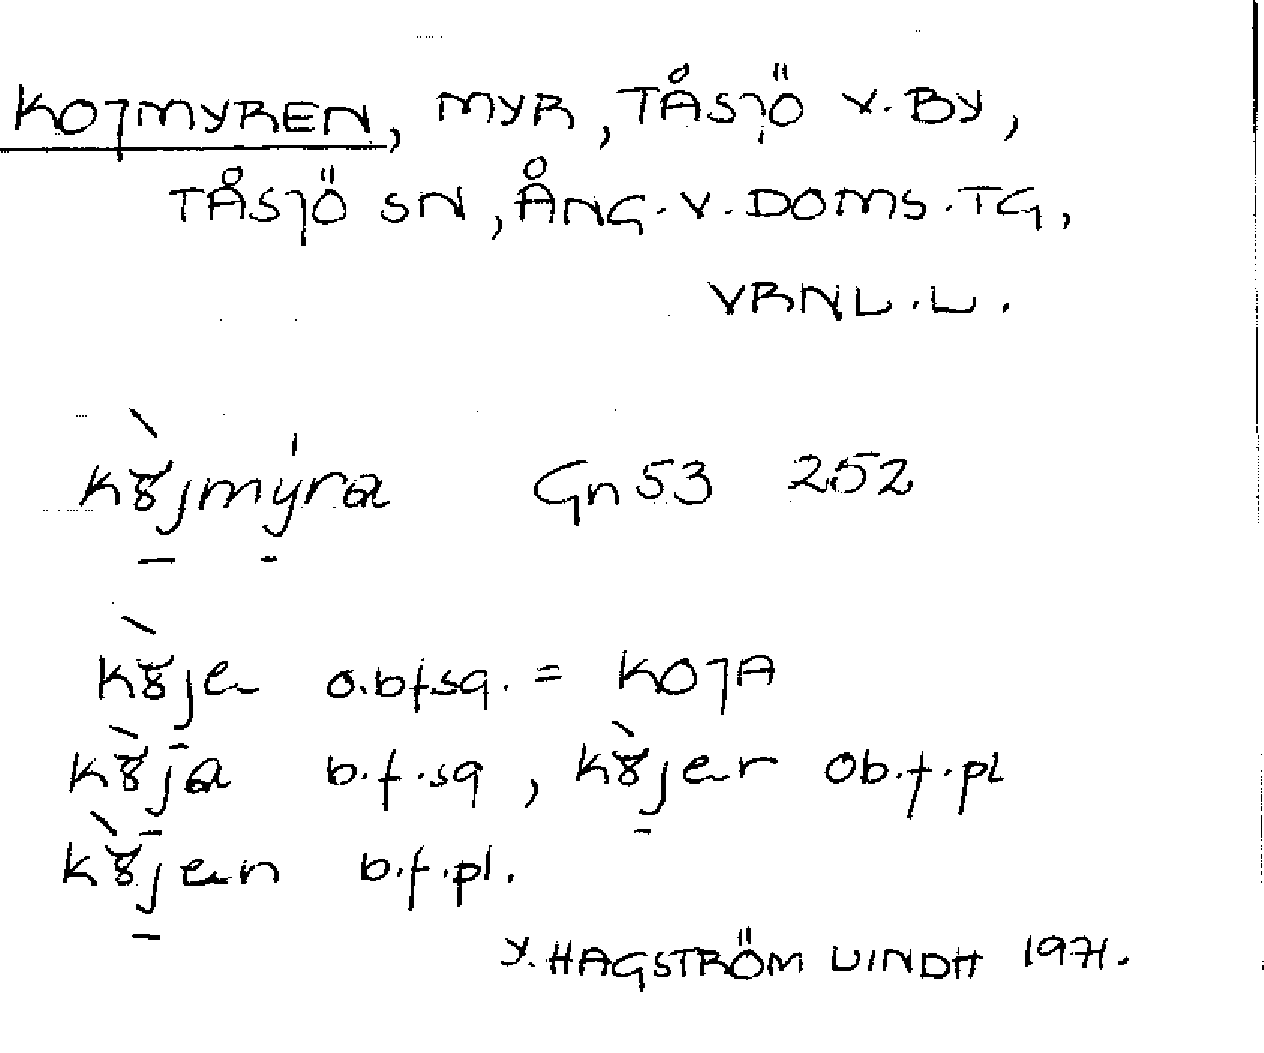 KOJMYREN, MYR, TÅSJÖ Y. BY,
TÅSJÖ SN, ÅNG. V. DOMS. TG,
VRNL. L.
kȣ̀jmýra Gn 53 252
kȣ̀je o.bf.sg. = KOJA
kȣ̀ja b.f.sg, kȣ̀jer ob.f.pl
kȣ̀jen b.f.pl.
Y. HAGSTRÖM LINDH 1971.